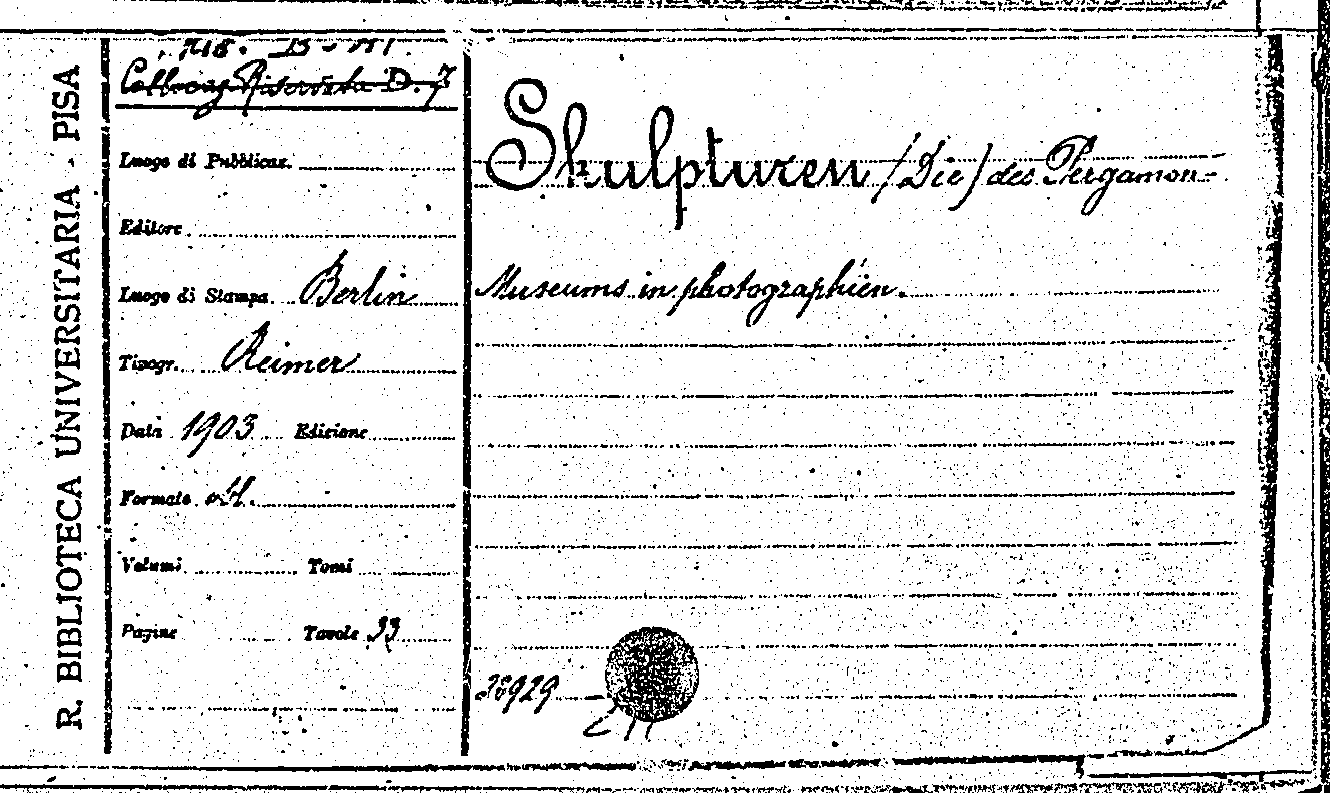 R. BIBLIOTECA UNIVERSITARIA - PISA
Collocaz Riservata D. 7
Luogo di Pubblicaz.
Editore
Luogo di Stampa Berlin
Tipogr. Reimer
Data 1903 Edizione
Formato obl.
Volumi Tomi
Pagine Tavole 33
Skulpturen (Die) des Pergamon-
Museums in photographien.